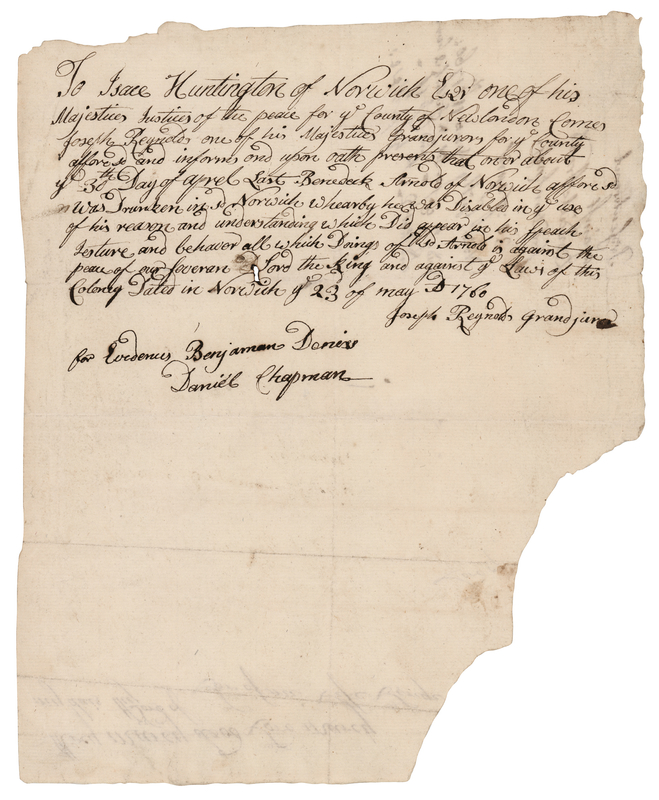 To Isace Huntington of Norwich Esqr one of his
Majesties Justices of the peace for ye County of Newlondon Comes
Joseph Reynolds one of his Majesties Grandjurors for ye County
affore sd and informs and upon oath presents that on or about
ye 30th Day of aprel Last Benedeck Arnold of Norwich affore sd
Was Drunken in sd Norwich whearby he was Disabled in ye use
of his reason and understanding which Did appear in his speach
Jesture and behavor all which Doings of the sd Arnold is against the
peace of our soveran Lord the King and against ye Laws of this
Colony Dated in Norwich ye 23 of may AD 1760
Joseph Reynolds Grandjuror
for Evedenus Benjaman Denixs
Daniel Chapman